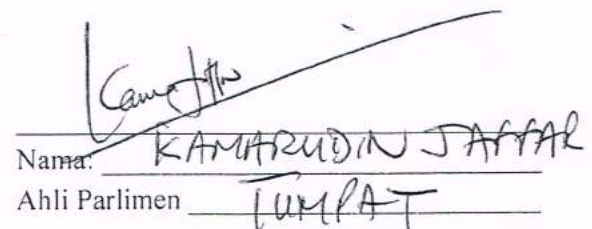 Nama: KAMARUDIN JAFFAR
Ahli Parlimen TUMPAT